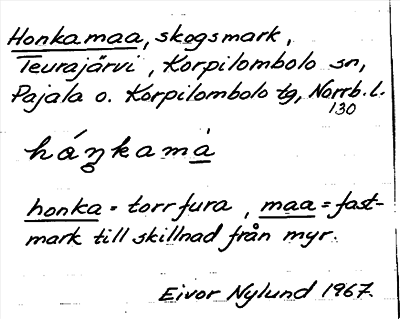 Honkamaa, skogsmark,
Teurajärvi, Korpilombolo sn,
Pajala o. Korpilombolo tg, Norrb. l.
130
háŋkamà
honka = torrfura, maa = fast-
mark till skillnad från myr.
Eivor Nylund 1967.